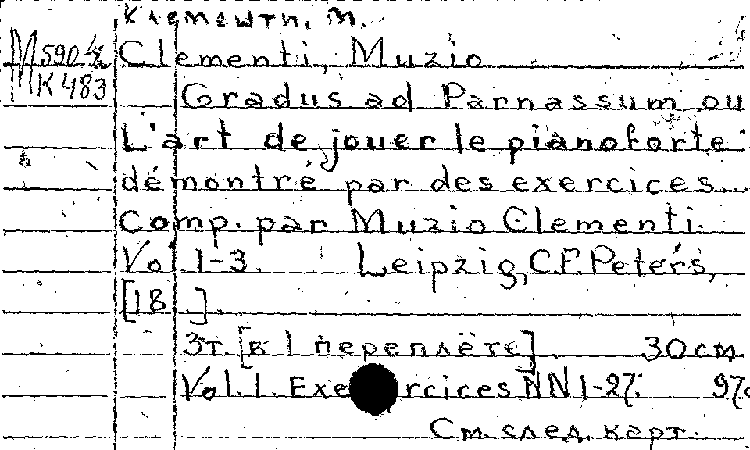 Клементи, М.
М590 4/2 Clementi, Muzio
К483
Gradus ad Parnassum ou
L'art de jouer le pianoforte
démontré par des exercices...
Comp. par Muzio Clementi.
Vol 1-3. Leipzig, C.F. Peters,
[18 ].
3т. [в 1 переплёте]. 30 см.
Vol. 1. Exercices NN 1-27.
См. след. карт.